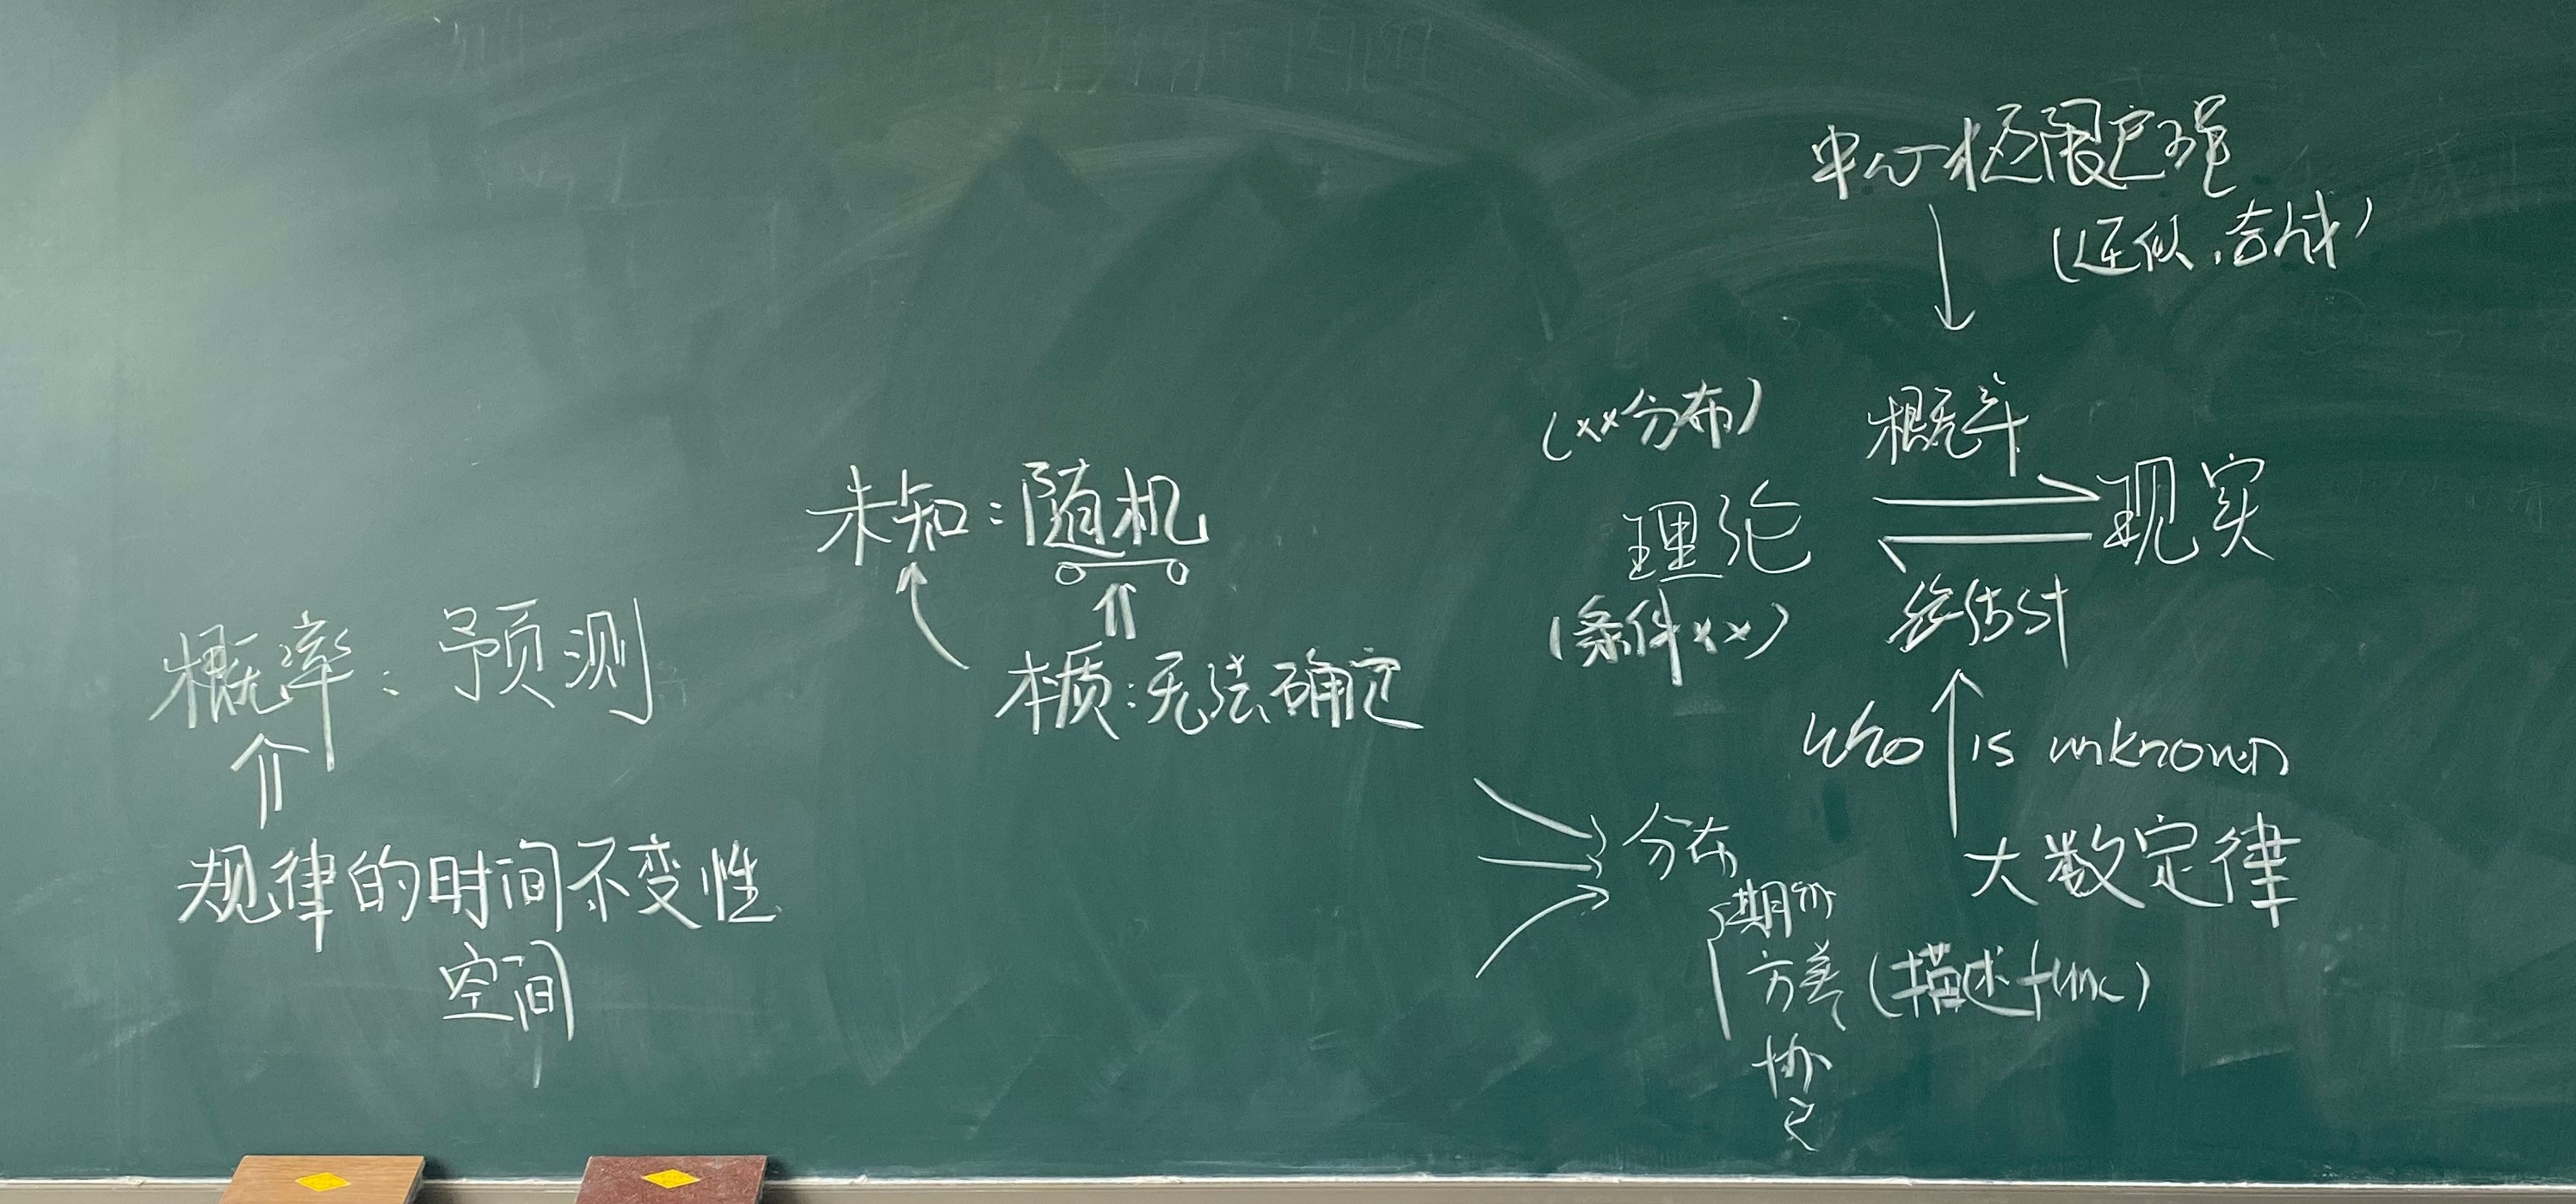 概率：预测
规律的时间不变性
空间
未知：随机
本质：无法确定
中心极限定理
(近似，合成)
(xx分布)
概率
理论
现实
(条件xx)
统计
who is unknown
大数定律
分布
期望
方差 (描述func)
协